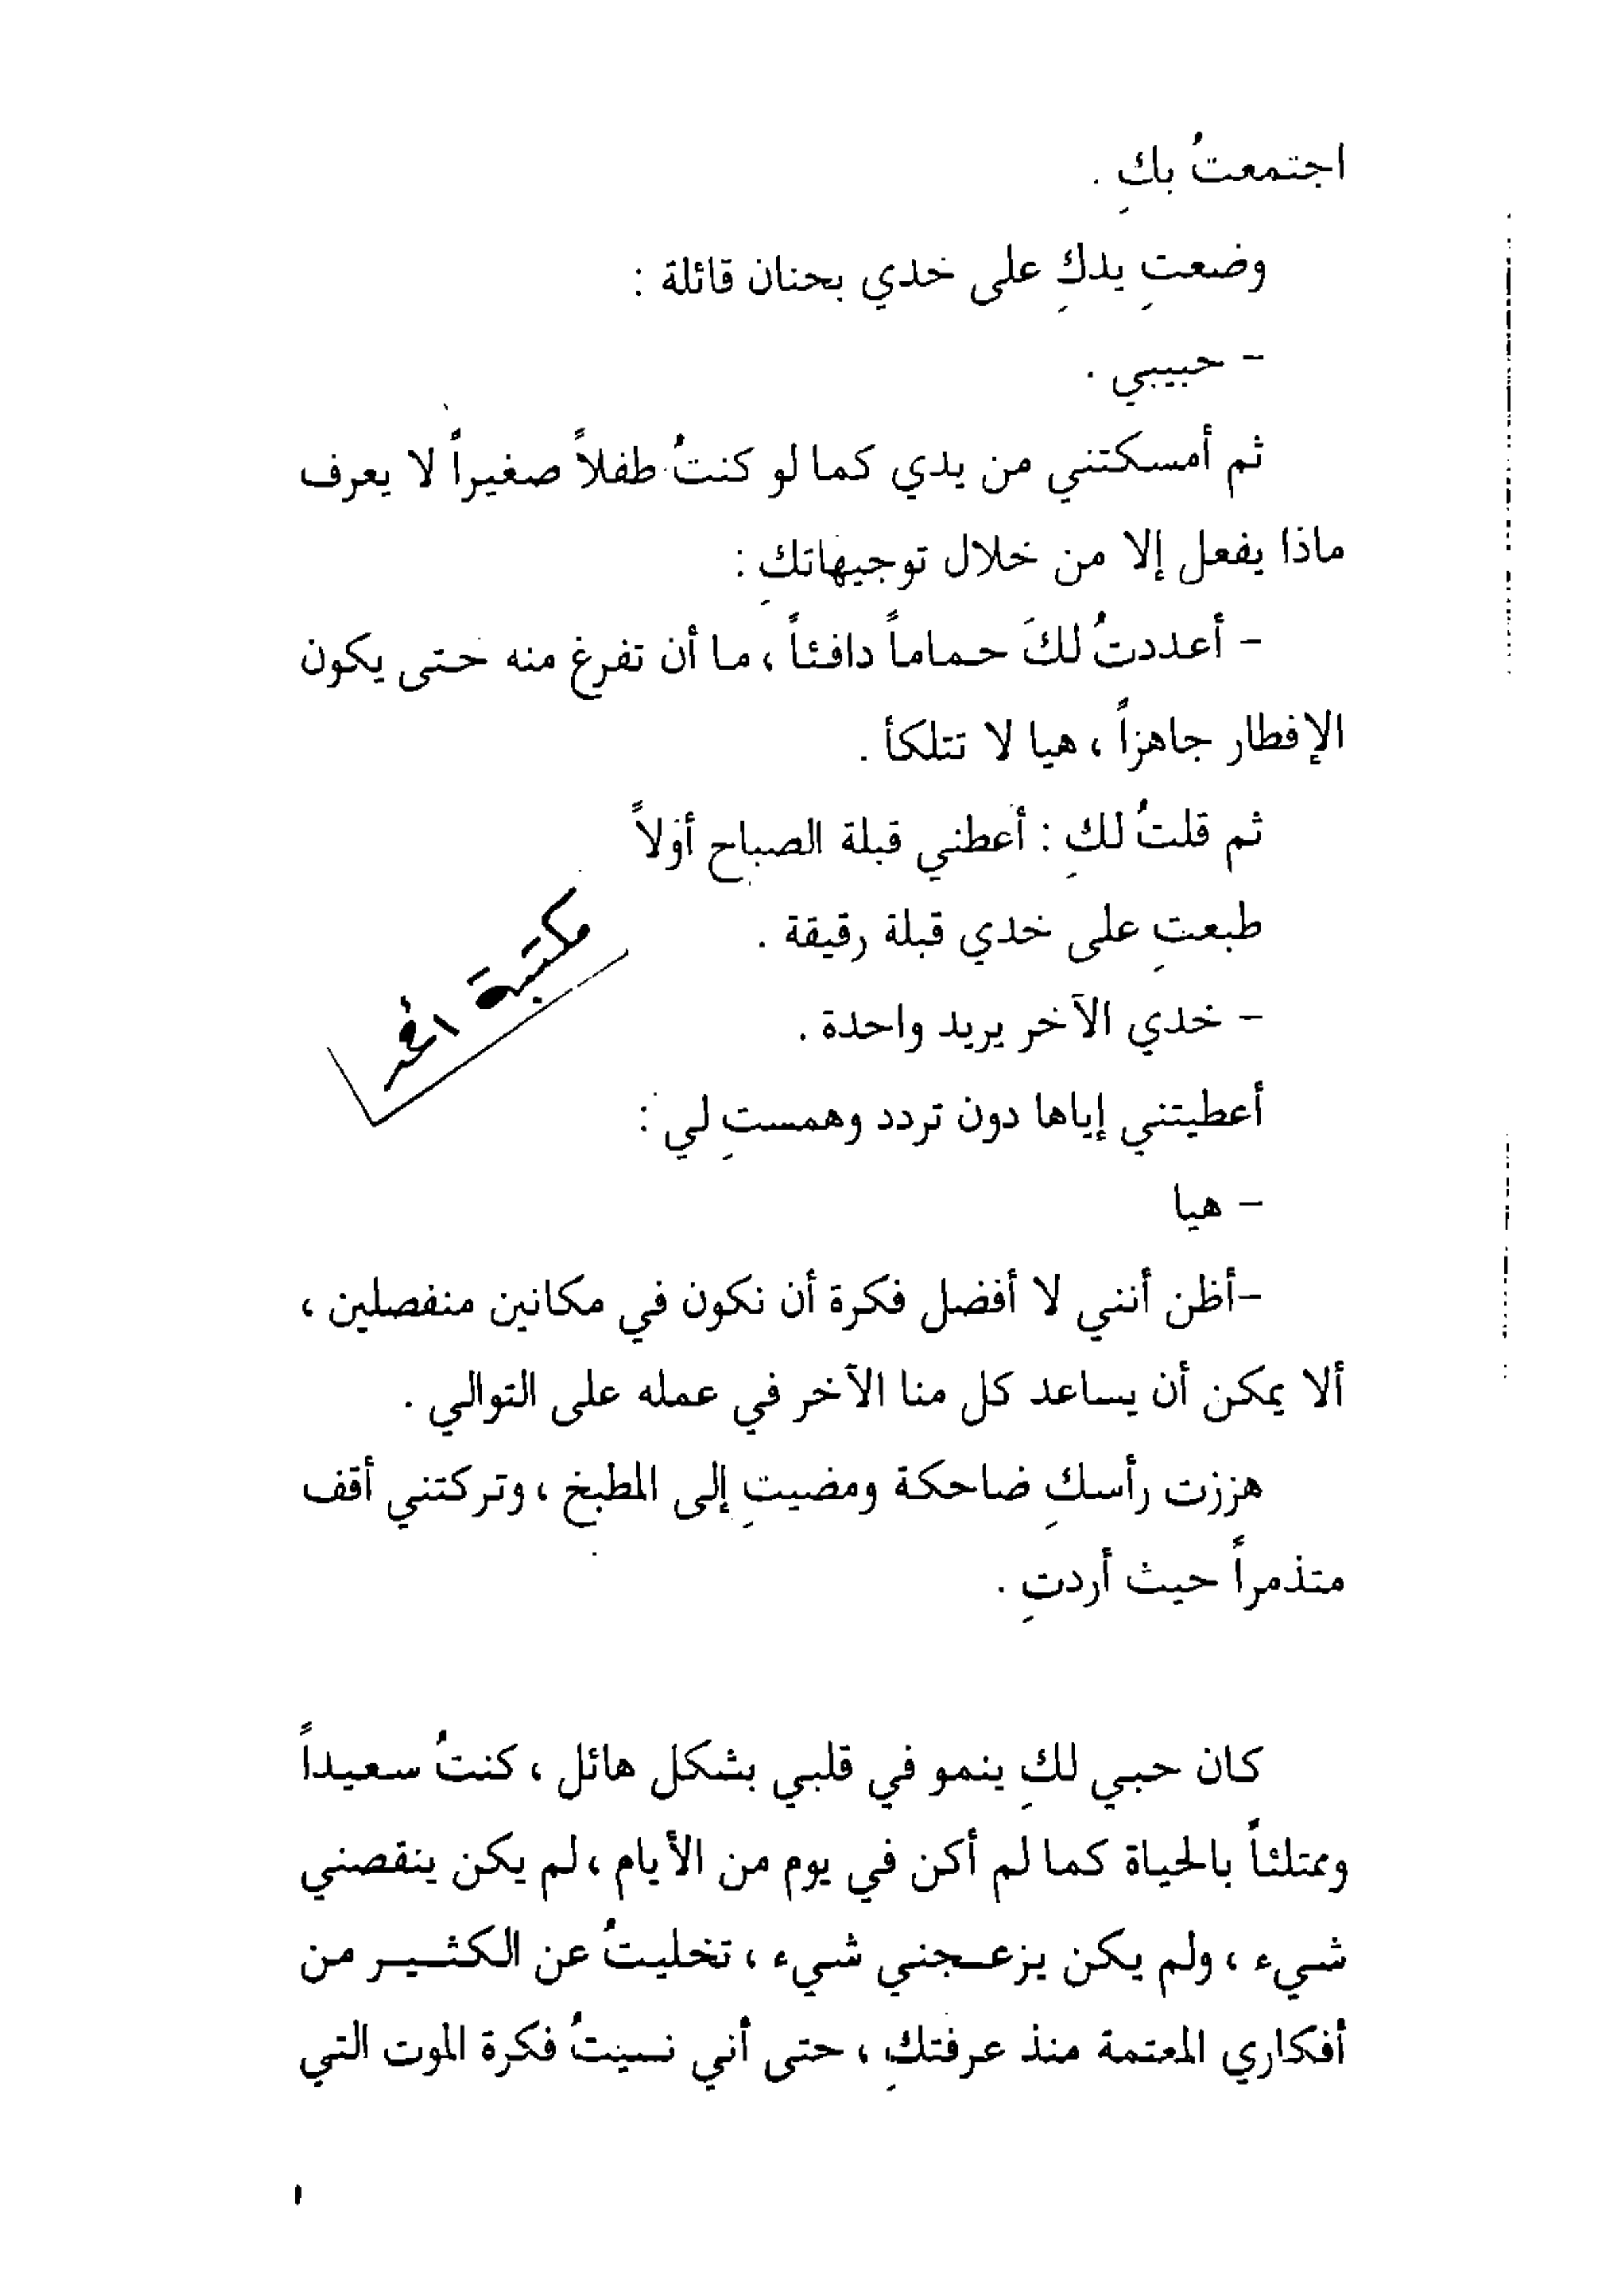 اجتمعتُ بكِ .
وضعتِ يدكِ على خدي بحنان قائلة :
- حبيبي .
ثم أمسكتني من يدي كما لو كنتُ طفلاً صغيراً لا يعرف
ماذا يفعل إلا من خلال توجيهاتكِ :
- أعددتُ لكَ حماماً دافئاً ، ما أن تفرغ منه حتى يكون
الإفطار جاهزاً ، هيا لا تتلكأ .
ثم قلتُ لكِ : أعطني قبلة الصباح أوّلاً
طبعتِ على خدي قبلة رقيقة .
مكتبة
- خدي الآخر يريد واحدة .
أعطيتني إياها دون تردد وهمستِ لي :
- هيا
-أظن أنني لا أفضل فكرة أن نكون في مكانين منفصلين ،
ألا يمكن أن يساعد كل منا الآخر في عمله على التوالي .
هززت رأسكِ ضاحكة ومضيتِ إلى المطبخ ، وتركتني أقف
متذمراً حيث أردتِ .
كان حبي لكِ ينمو في قلبي بشكل هائل ، كنتُ سعيداً
وممتلئاً بالحياة كما لم أكن في يوم من الأيام ، لم يكن ينقصني
شيء ، ولم يكن يزعجني شيء ، تخليتُ عن الكثير من
أفكاري المعتمة منذ عرفتكِ ، حتى أني نسيتُ فكرة الموت التي